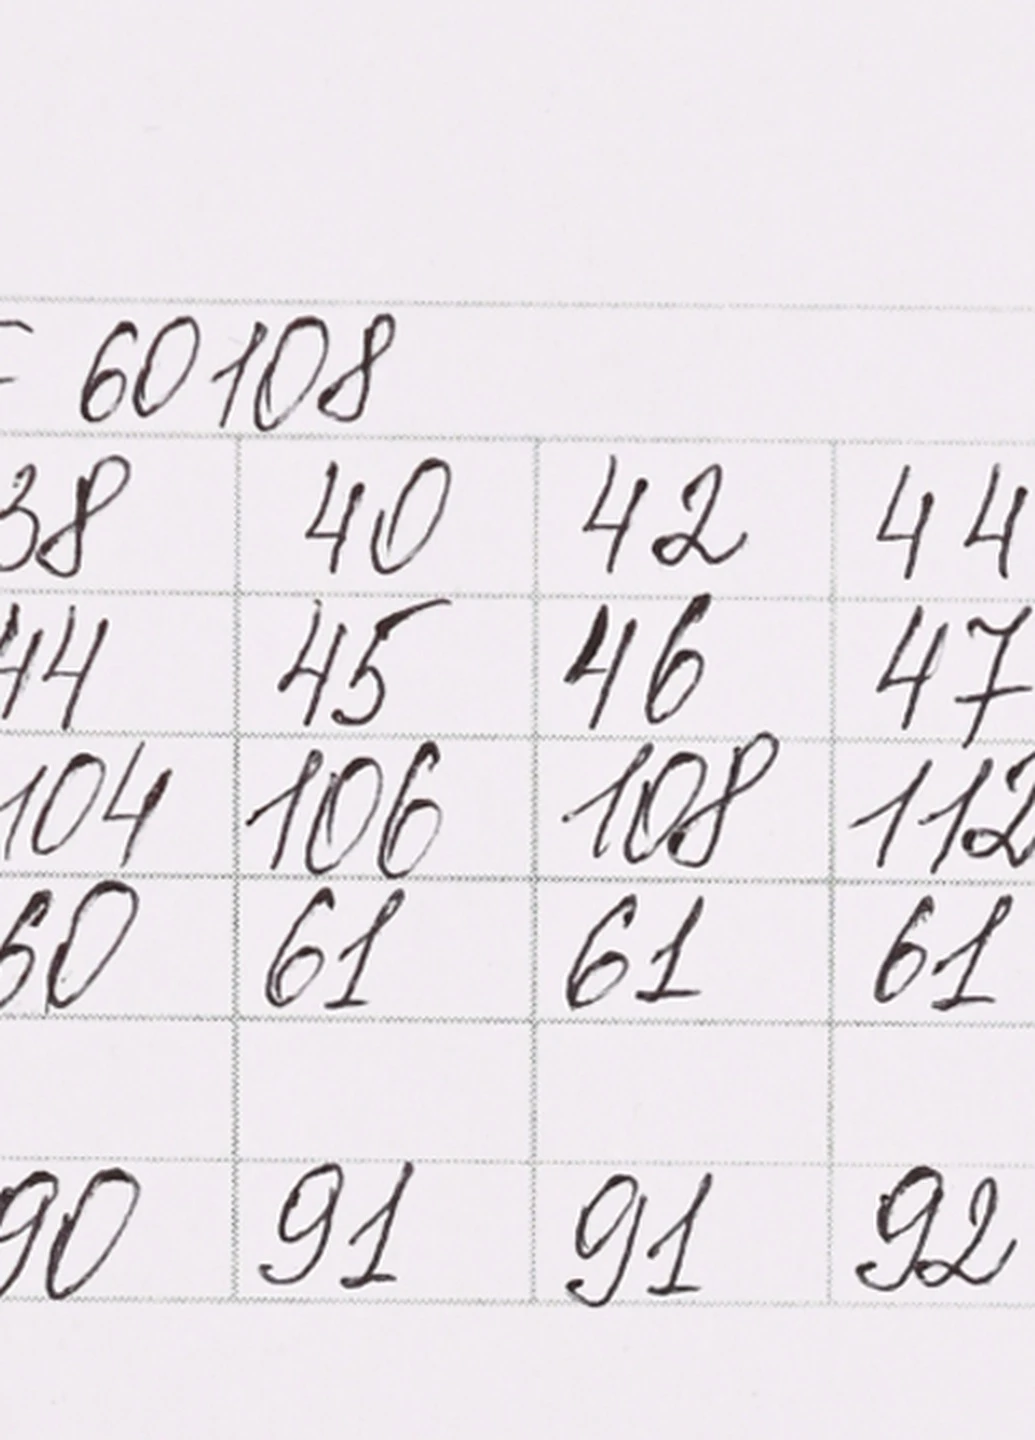 60108
38 40 42 44
44 45 46 47
104 106 108 112
60 61 61 61
90 91 91 92